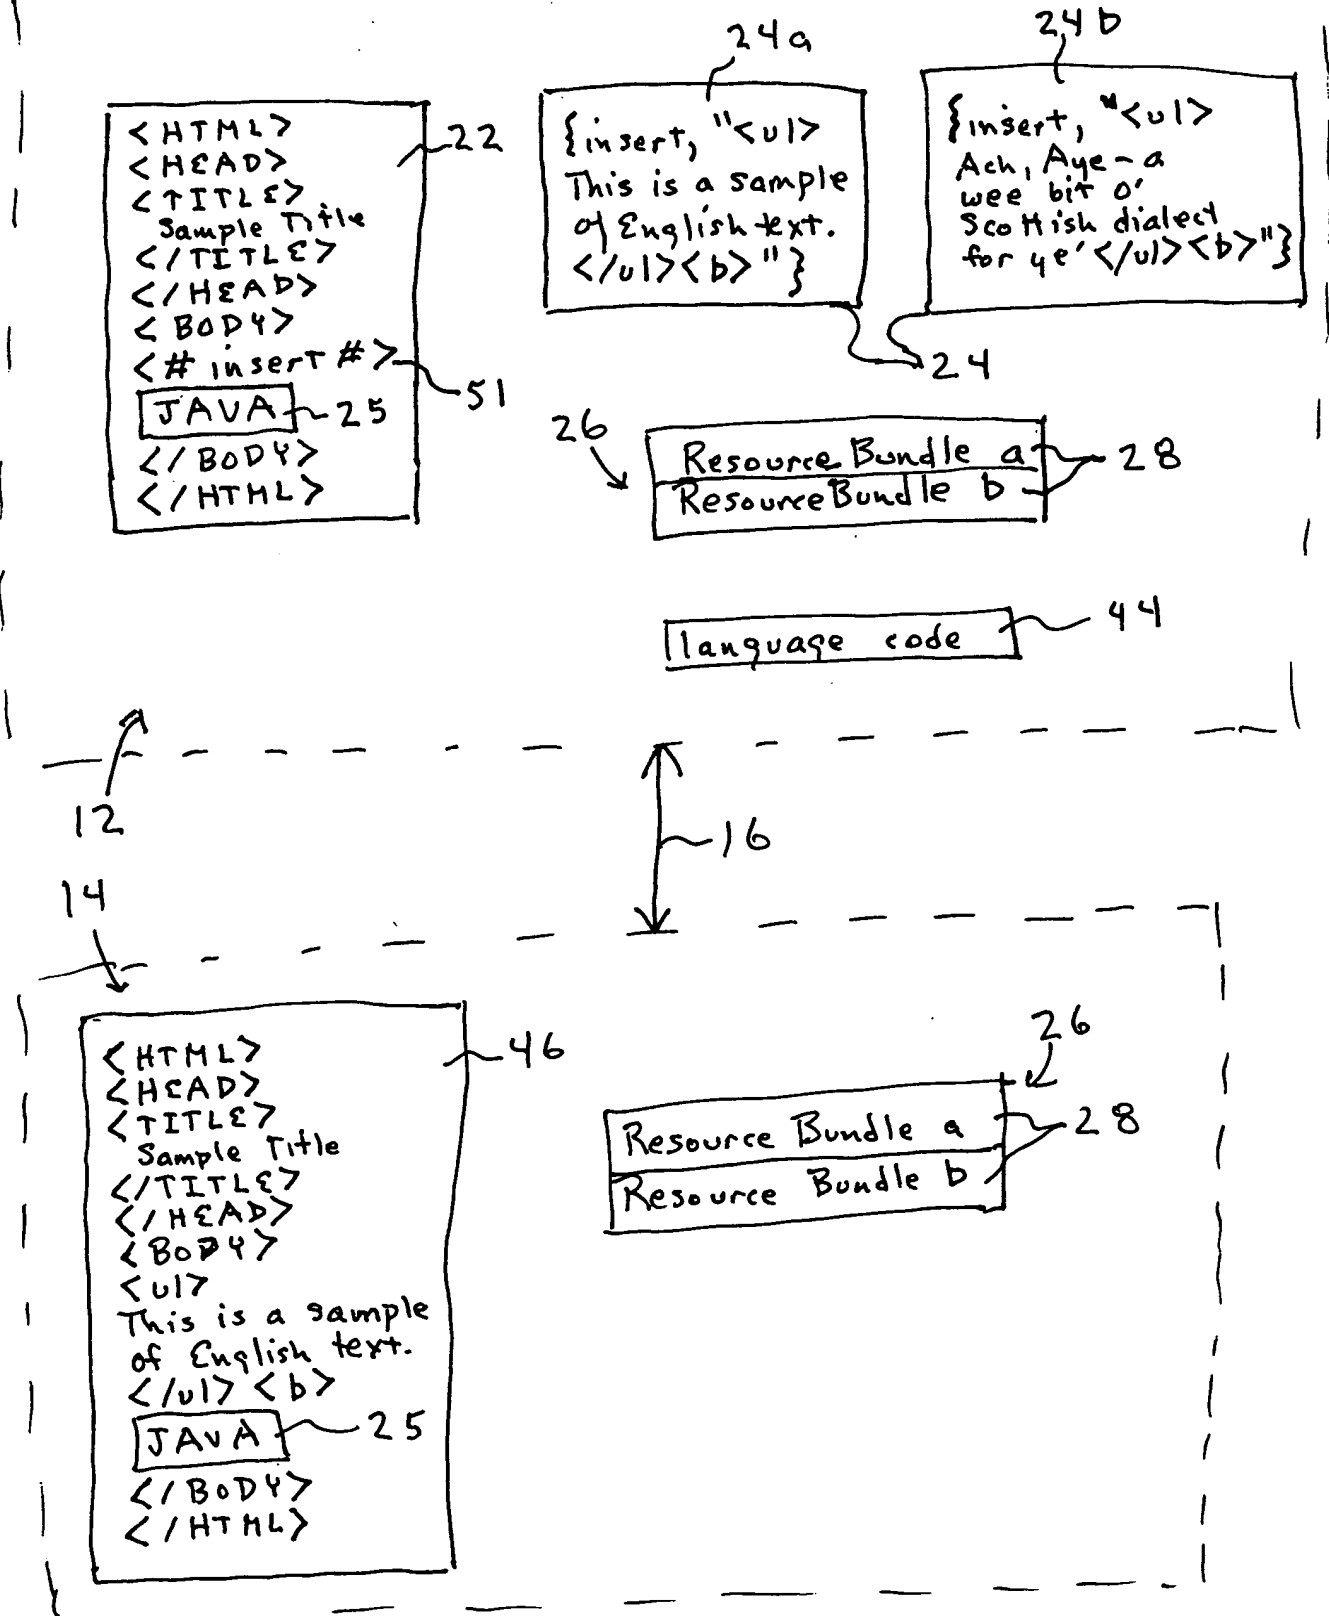 24a
24b
<HTML>
<HEAD>
<TITLE>
Sample Title
</TITLE>
</HEAD>
<BODY>
<# insert #>
JAVA
</BODY>
</HTML>
22
51
25
{insert, "<ul>
This is a sample
of English text.
</ul><b>"}
{insert, "<ul>
Ach, Aye - a
wee bit o'
Scottish dialect
for ye'</ul><b>"}
24
26
Resource Bundle a
Resource Bundle b
28
language code
44
12
16
14
<HTML>
<HEAD>
<TITLE>
Sample Title
</TITLE>
</HEAD>
<BODY>
<ul>
This is a sample
of English text.
</ul> <b>
JAVA
</BODY>
</HTML>
46
25
26
Resource Bundle a
Resource Bundle b
28